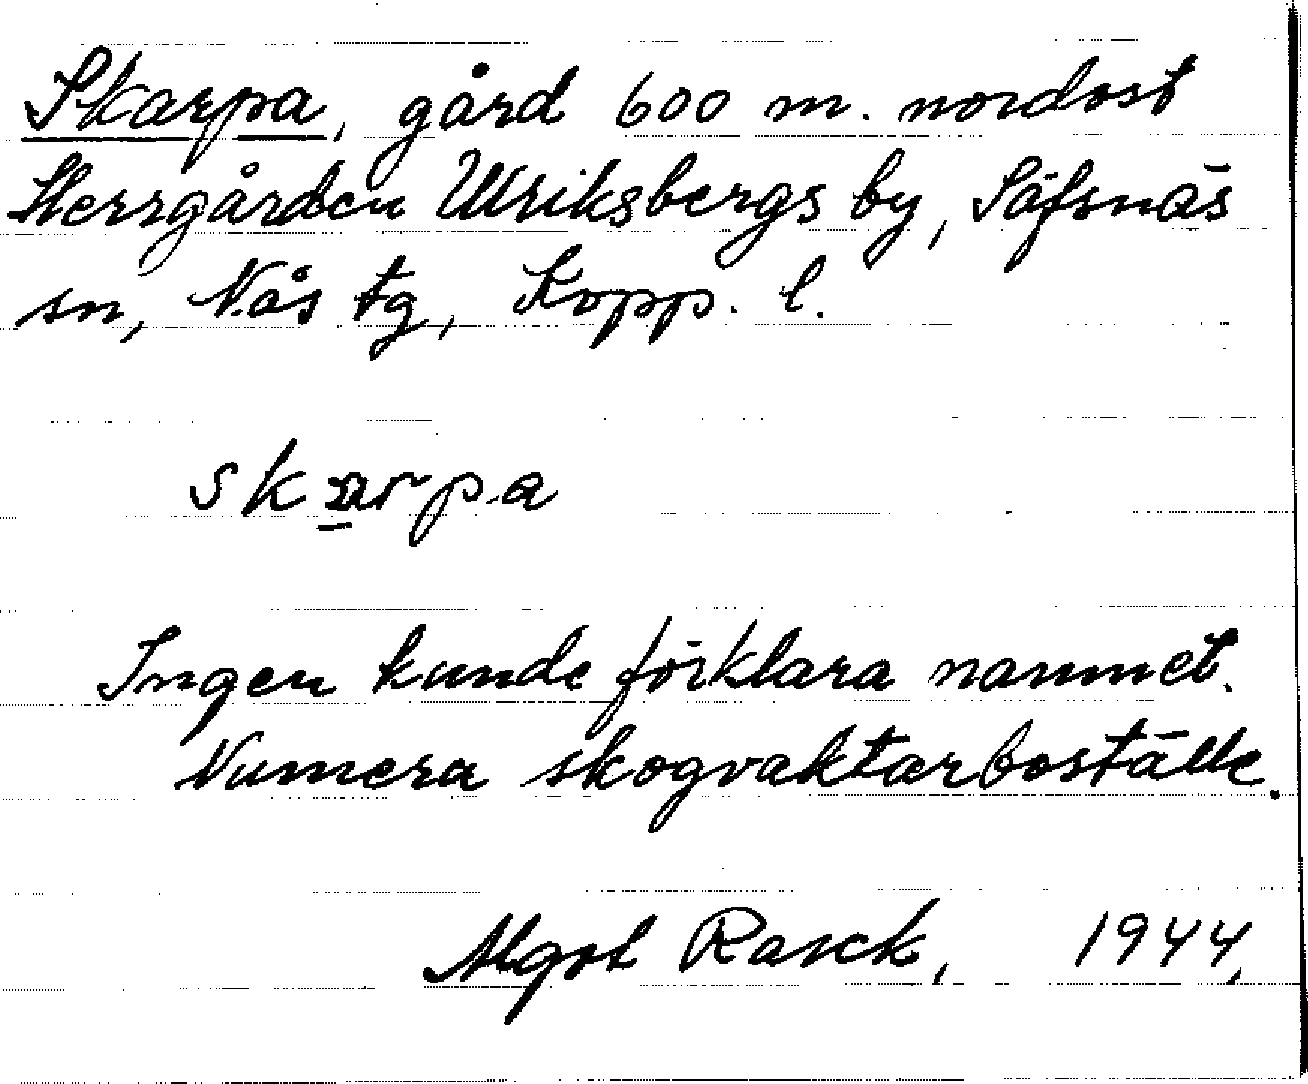 Skarpa, gård 600 m. nordost
Herrgården Ulriksbergs by, Säfsnäs
sn, Nås tg, Kopp. l.
skarpa
Ingen kunde förklara namnet.
Numera skogvaktarboställe.
Algot Rasck, 1944,